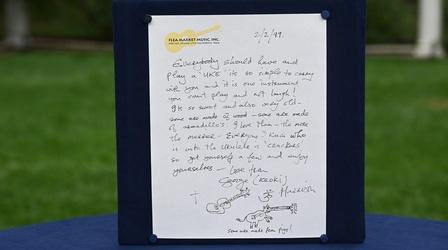 FLEA MARKET MUSIC, INC.
2/2/99.
Everybody should have and
play a 'UKE' its so simple to carry
with you and it is one instrument
you cant play and not laugh!
Its so sweet and also very old -
some are made of wood - some are made
of armadillo's. I love them - the more
the merrier - Everyone I know who
is into the Ukulele is 'crackers'
so get yourself a few and enjoy
yourselves - Love from
George (Keoki)
Harrison
Some are made from pigs!